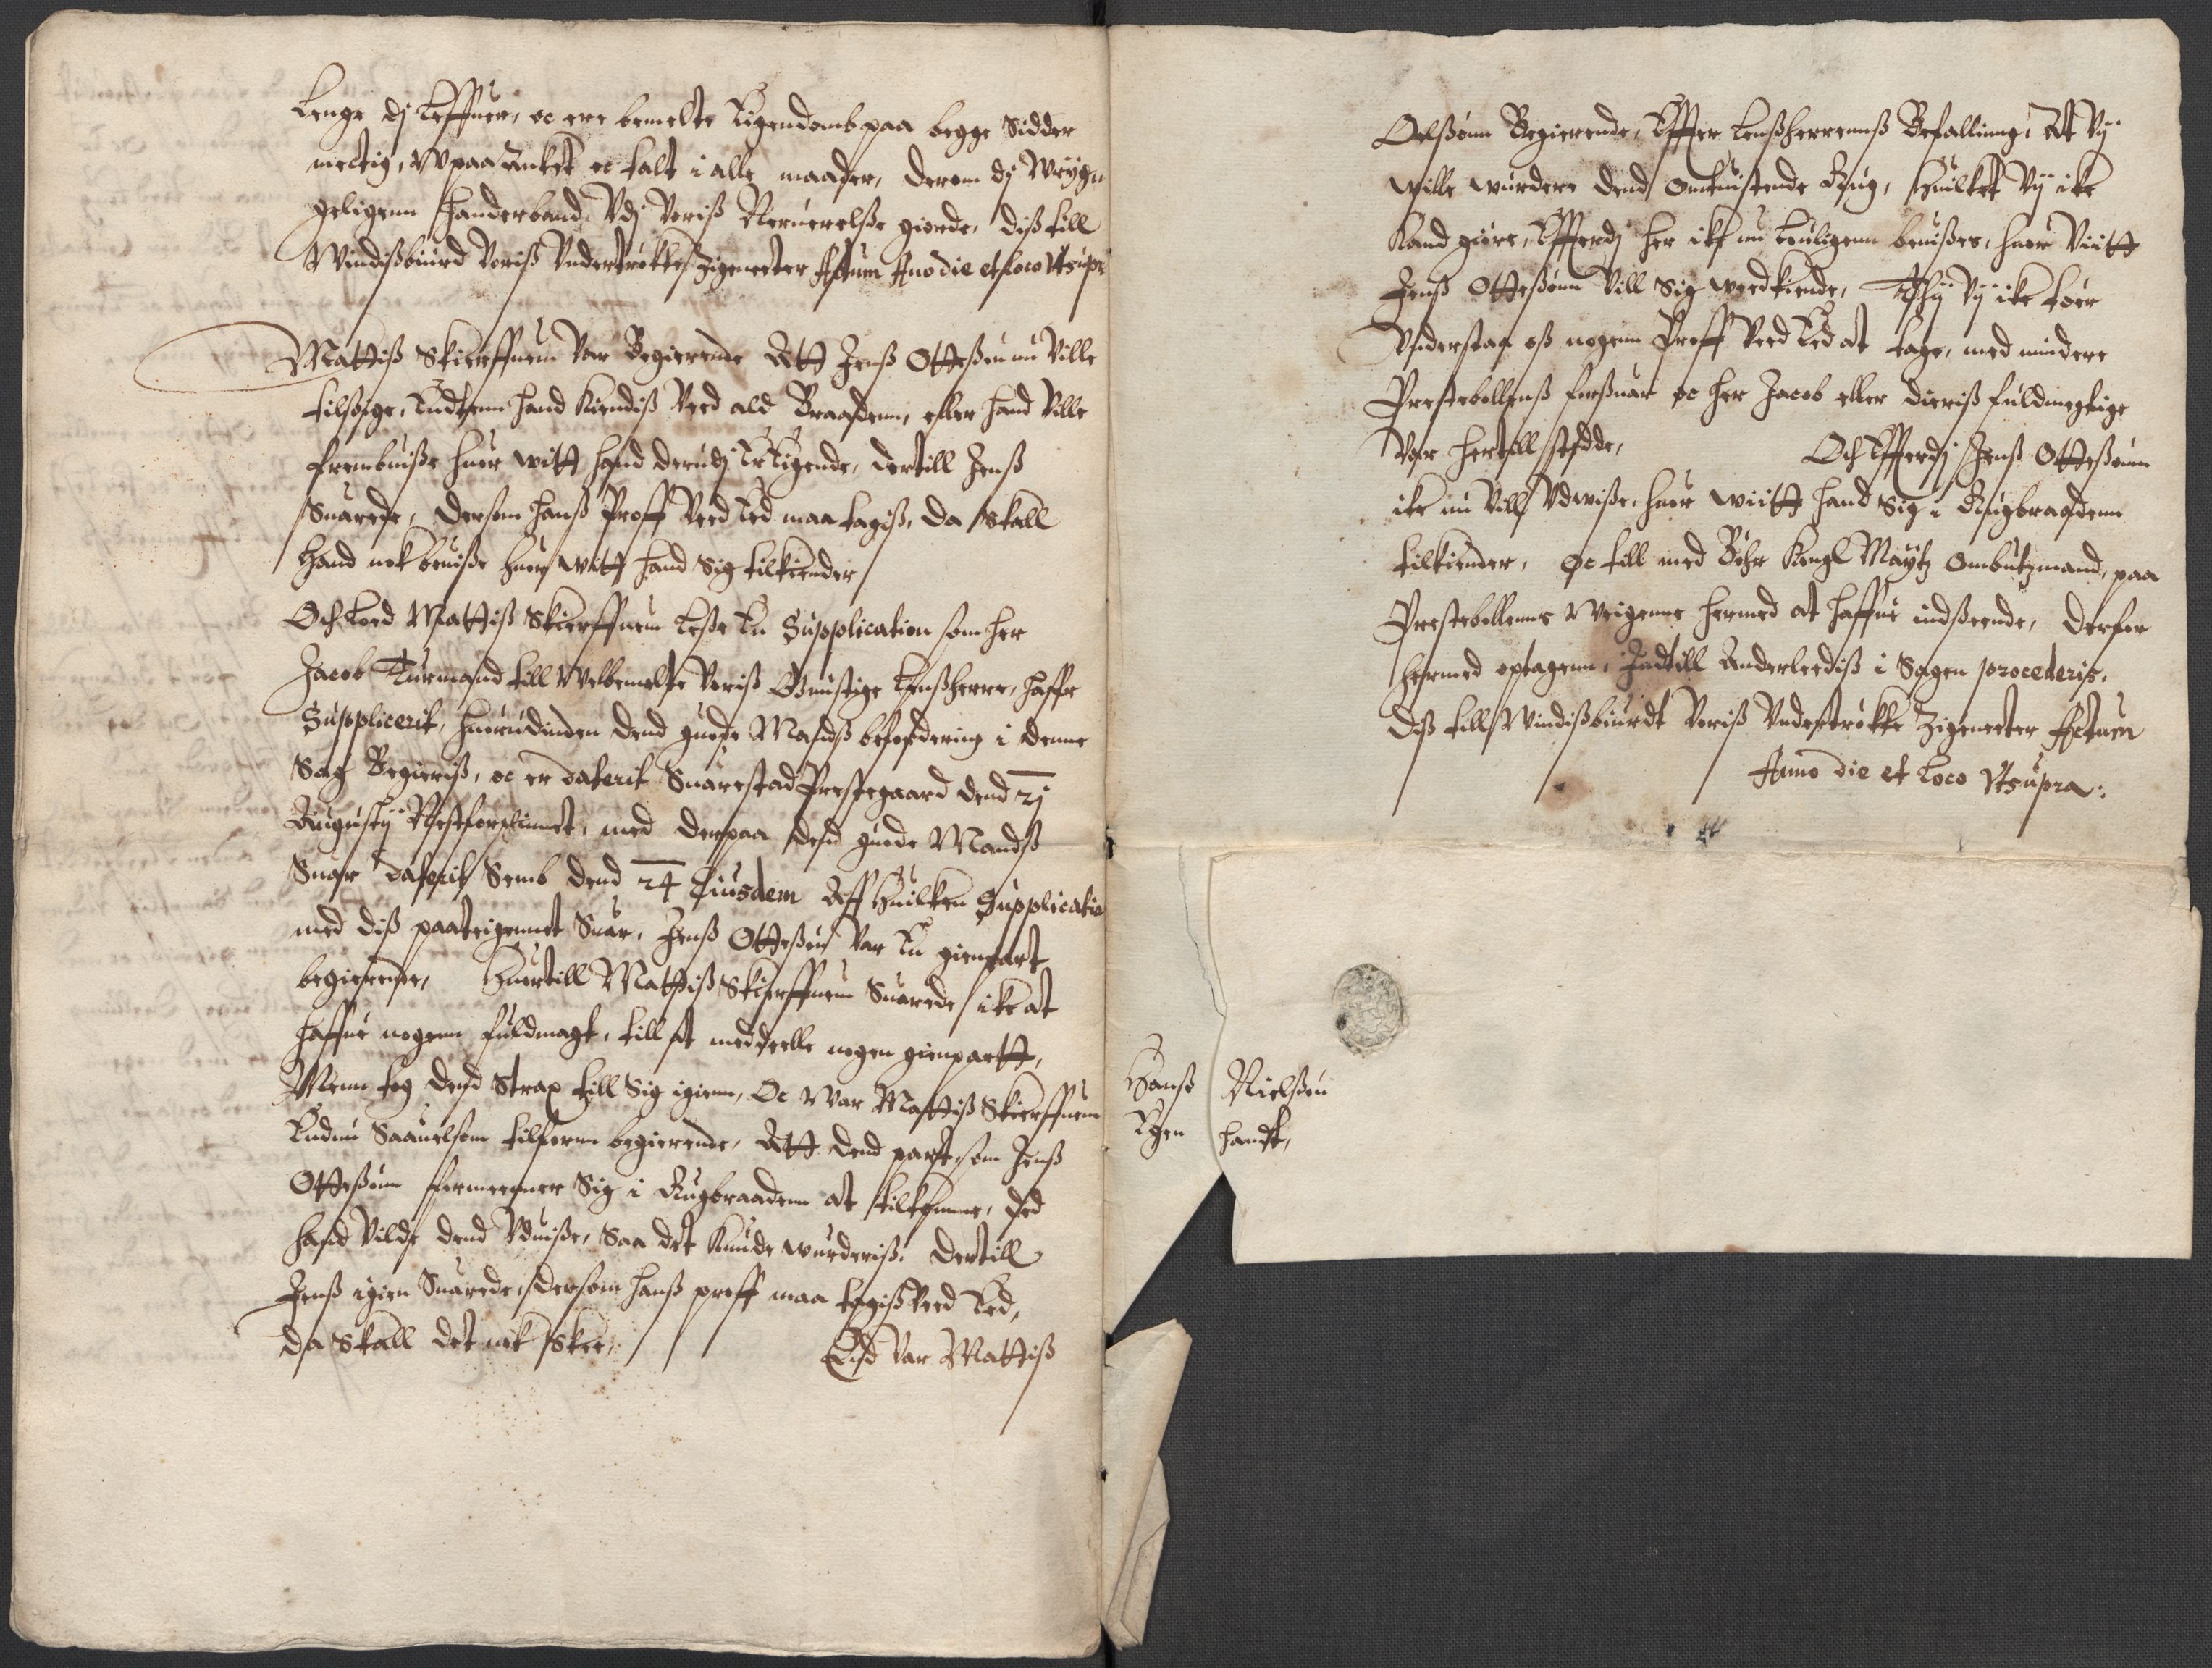 Lenge dj Leffuer, oc ere bemelte Eigendomb paa begge Sidder
mectig, Wpaa Anket oc talt i alle maader, derom dj
geligenn Handerband Vdj Voriß Neruerelße giorde, diß till
Windißbiurd Voriß Vndertrökte Zigenetter Actum Ano die et loco Vtsupr
Mattiß Skierffuem Var Begierende Att Jenß Otteßen nu Ville
tilßige, hand Kiendiß Ved ald Braadenn, eller hand Ville
frembuiße huor witt hand derudj Er Eigende, dertill Jenß
Suarede, dersom hanß Proff Ved Ed maa tagiß, da skall
Hand nok beuiße huor witt hand Sig tilkiender
Och Lod Mattiß Skierffuem Leße En Supplication som her
Jacob Turmand till Welbemelte Voriß Gunstige Lenßherre, haffr
Supplicerit, huorudinden dend guode Mandß befordering i denne
Sag Begieriß, oc er daterit Suarestad Prestegaard dend 21
Augustij Nestforlinnet, med derpaa dend guode Mandß
Suar daterit Semb dend 24 Eiusdem Aff Huilken Supplicatio
med diß paateigennet Suar, Jenß Otteßen Var En gienpart
begierende, Huortill Mattiß Skierffuem Suarede ike at
haffue nogenn fuldmagt, till at meddeelle nogen gienpartt,
Menn tog dend Strax till Sig igienn, Oc War Mattiß Skierffuem
Endnu Saauelsom tilforne begierende, Att dend part, som Jenß
Otteßönn formeener Sig i Rugbraadenn at tilkomme, Ded
hand Vilde dend Vduiße, Saa det Kunde wurderiß. Dertill
Jenß igien Suarede, dersom hanß proff maa tagiß Ved Ed,
da skall det nok skee, End Var Mattiß
Oelßönn Begierende, Effter Lenßherrennß Befalling, At Vij
wille wurdere dend omtuistende Rug, Huilket Vij ike
Kand giöre, Effterdj her ike nu louligenn beuißes, huor Viitt
Jenß Otteßönn Vill Sig wedkiende, Thij Vij ike toer
Vnderstaa oß nogenn Proff Ved Ed at tage, med mindere
Prestebollenß forßuar oc her Jacob eller dieriß fuldmegtige
Var hertill stedde, Och Effterdj Jenß Otteßönn
ike nu Vill Vdwiße, huor wiitt hand Sig i Rugbraadenn
tilkiender, Oc till med Bör Kongl Maytz Ombutzmand, paa
Prestebollenns Weigenne hermed at haffue indßeende, Derfor
hermed optagenn, Indtill Anderleediß i Sagen procederis.
Diß till Windißbiurdt Voriß Vndertrökte Zigenetter Actum
Anno die et Loco Vtsupra:
Hanß Nielßen
Egen handt,